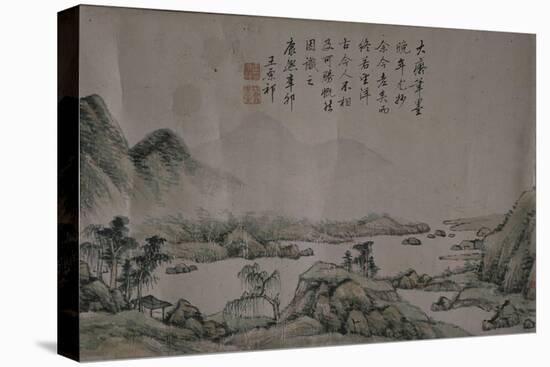 大癡筆墨
晚年尤妙
余今老矣而
終若望洋
古今人不相
及可勝慨然
因識之
康熙辛卯
王原祁